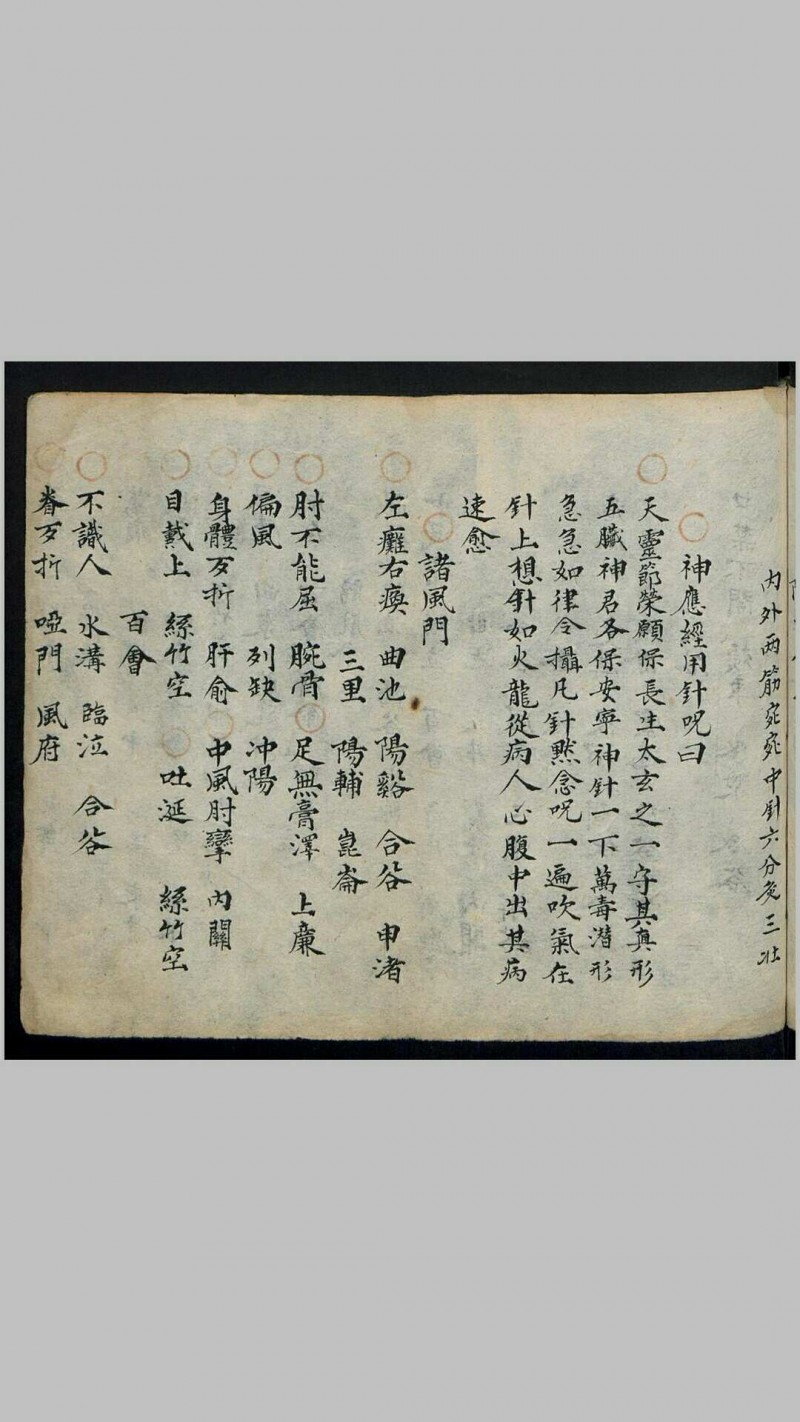 內外兩筋宛宛中針六分灸三壯
神應經用針呪曰
天靈節榮願保長生太玄之一守其真形
五臟神君各保安寧神針一下萬毒潛形
急急如律令攝凡針黙念呪一遍吹氣在
針上想針如火龍從病人心腹中出其病
速愈
諸風門
左癱右瘓 曲池 陽谿 合谷 申渚
三里 陽輔 崑崙
肘不能屈 腕骨 足無膏澤 上廉
偏風 列缺 冲陽
身體歹折 肝俞 中風肘攣 內關
目戴上 絲竹空 吐涎 絲竹空
百會
不識人 水溝 臨泣 合谷
脊歹折 啞門 風府